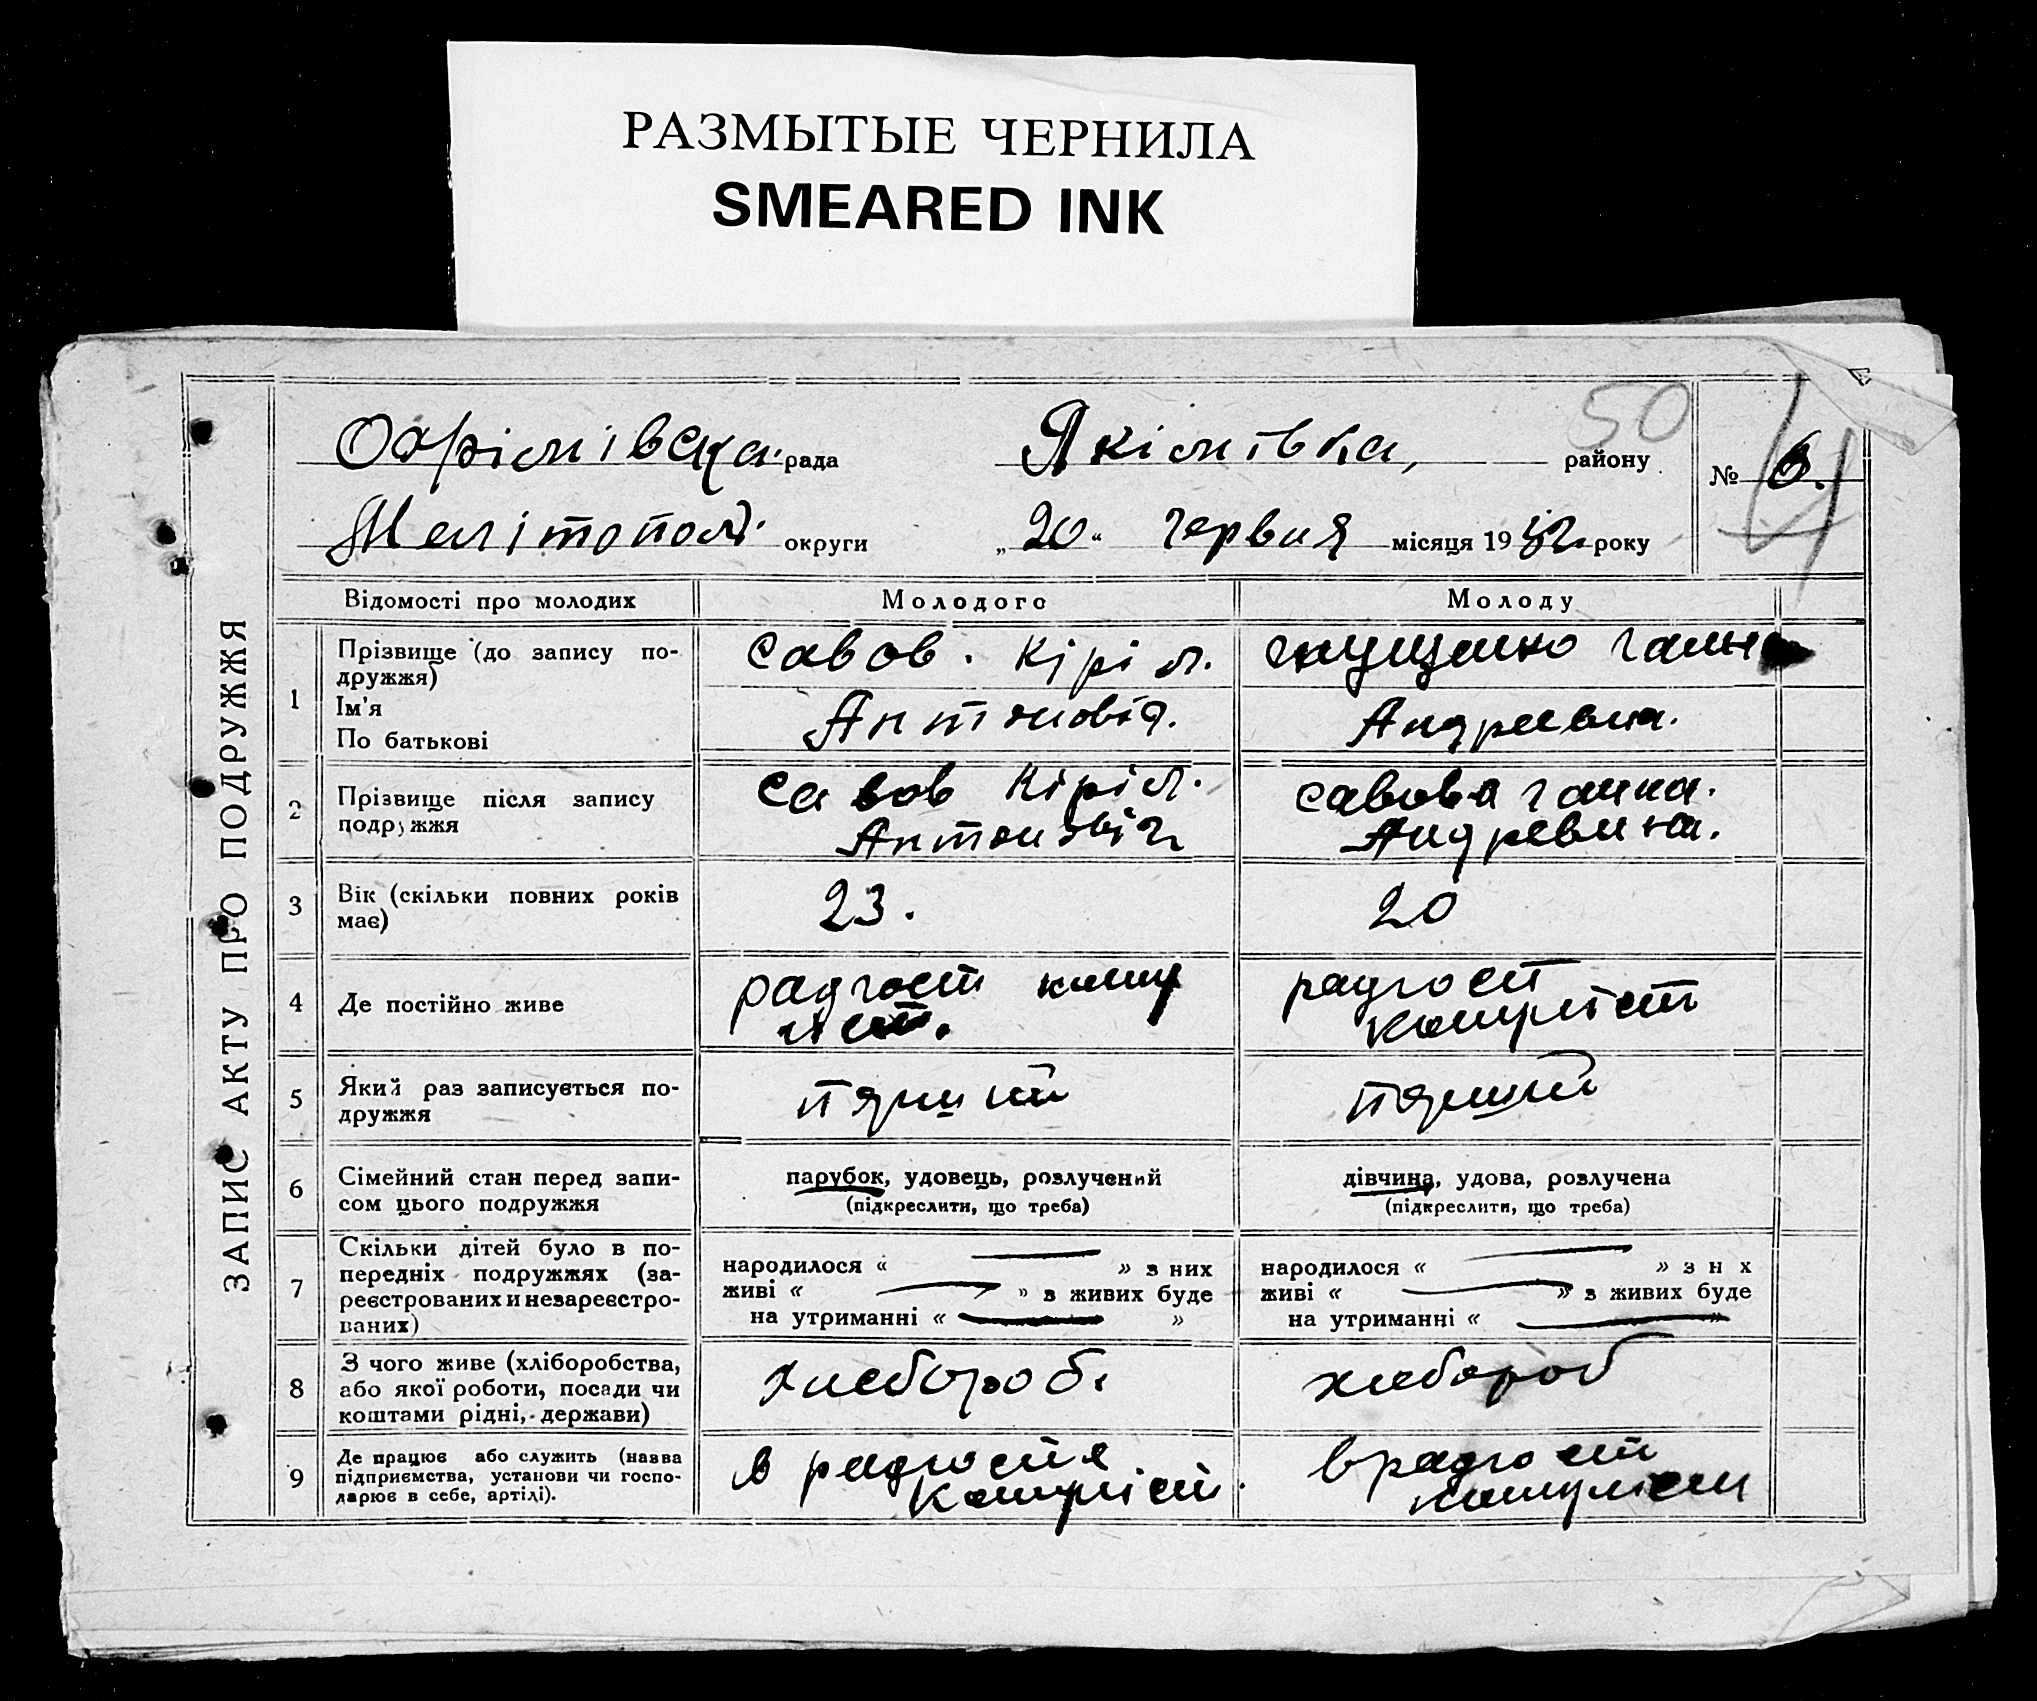 РАЗМЫТЫЕ ЧЕРНИЛА
SMEARED INK
50
Охрімівська рада Якімівка, району № 6.
Мелітополь округи „20“ червня місяця 1932 року
ЗАПИС АКТУ ПРО ПОДРУЖЖЯ
Відомості про молодих Молодого Молоду
1 Прізвище (до запису по-
дружжя)
Ім'я
По батькові
Савов. Кіріл.
Антоновіч.
Ганна
Андреевна.
2 Прізвище після запису
подружжя
Савов Кіріл.
Антоновіч
Савова Ганна.
Андревина.
3 Вік (скільки повних років
має)
23. 20
4 Де постійно живе
радгосп кому
ніст.
радгосп
комуніст
5 Який раз записується по-
дружжя
перший перший
6 Сімейний стан перед запи-
сом цього подружжя
парубок, удовець, розлучений
(підкреслити, що треба)
дівчина, удова, розлучена
(підкреслити, що треба)
7 Скільки дітей було в по-
передніх подружжях (за-
реєстрованих и незареєстро-
ваних)
народилося « » з них
живі « » з живих буде
на утриманні « »
народилося « » з н х
живі « » з живих буде
на утриманні « »
8 З чого живе (хліборобства,
або якої роботи, посади чи
коштами рідні, держави)
хлебороб. хлебороб
9 Де працює або служить (назва
підприємства, установи чи госпо-
дарює в себе, артілі).
в радгоспе
комуніст.
в радгосп
комуніст